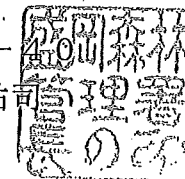 －40
司
盛岡森林
管理署
長の印